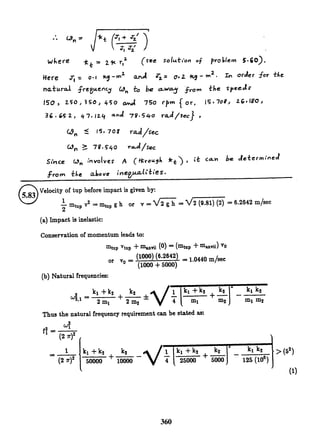 ∴ ωn = √( kt ( (J1 + J2') / (J1 J2') ) )
where kt = 2 k r1² (see solution of problem 5.60).
Here J1 = 0.1 kg-m² and J2 = 0.2 kg-m². In order for the
natural frequency ωn to be away from the speeds
150, 250, 350, 450 and 750 rpm { or, 15.708, 26.180,
36.652, 47.124 and 78.540 rad/sec},
ωn ≤ 15.708 rad/sec
ωn ≥ 78.540 rad/sec
Since ωn involves A (through kt), it can be determined
from the above inequalities.
5.83 Velocity of tup before impact is given by:
1/2 mtup v² = mtup g h or v = √2 g h = √2 (9.81) (2) = 6.2642 m/sec
(a) Impact is inelastic:
Conservation of momentum leads to:
mtup vtup + manvil (0) = (mtup + manvil) v0
or v0 = (1000) (6.2642) / (1000 + 5000) = 1.0440 m/sec
(b) Natural frequencies:
ω²2,1 = (k1 + k2) / (2 m1) + k2 / (2 m2) ± √( 1/4 [ (k1 + k2) / m1 + k2 / m2 ]² − k1 k2 / (m1 m2) )
Thus the natural frequency requirement can be stated as:
f1² = ω1² / (2 π)²
= 1 / (2 π)² { (k1 + k2) / 50000 + k2 / 10000 − √( 1/4 [ (k1 + k2) / 25000 + k2 / 5000 ]² − k1 k2 / (125 (10⁶)) ) } > (5²)
(1)
360